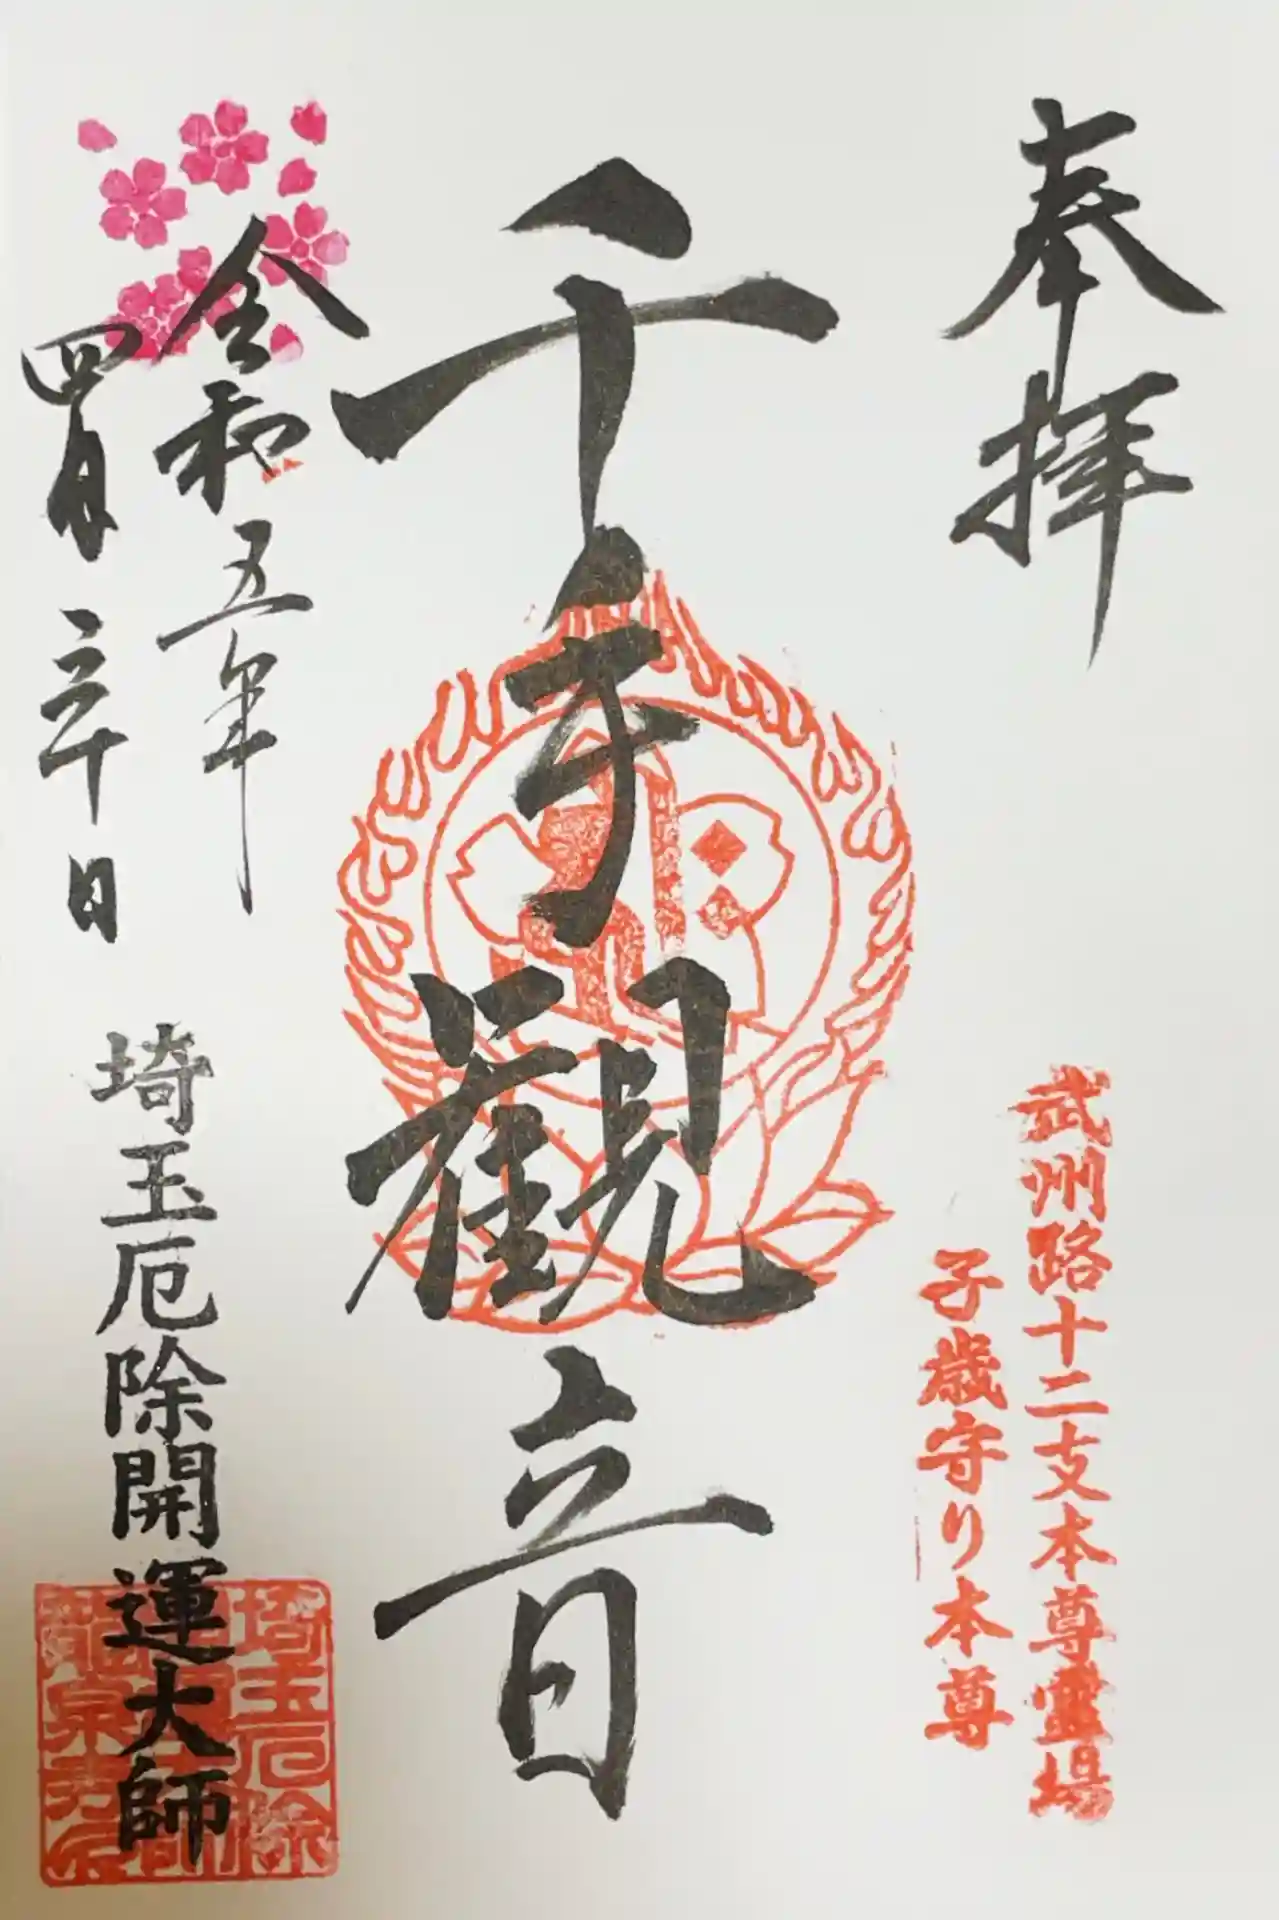 奉拝
武州路十二支本尊霊場
子歳守り本尊
千手観音
令和五年
四月三十日
埼玉厄除開運大師
埼玉厄除
龍泉寺